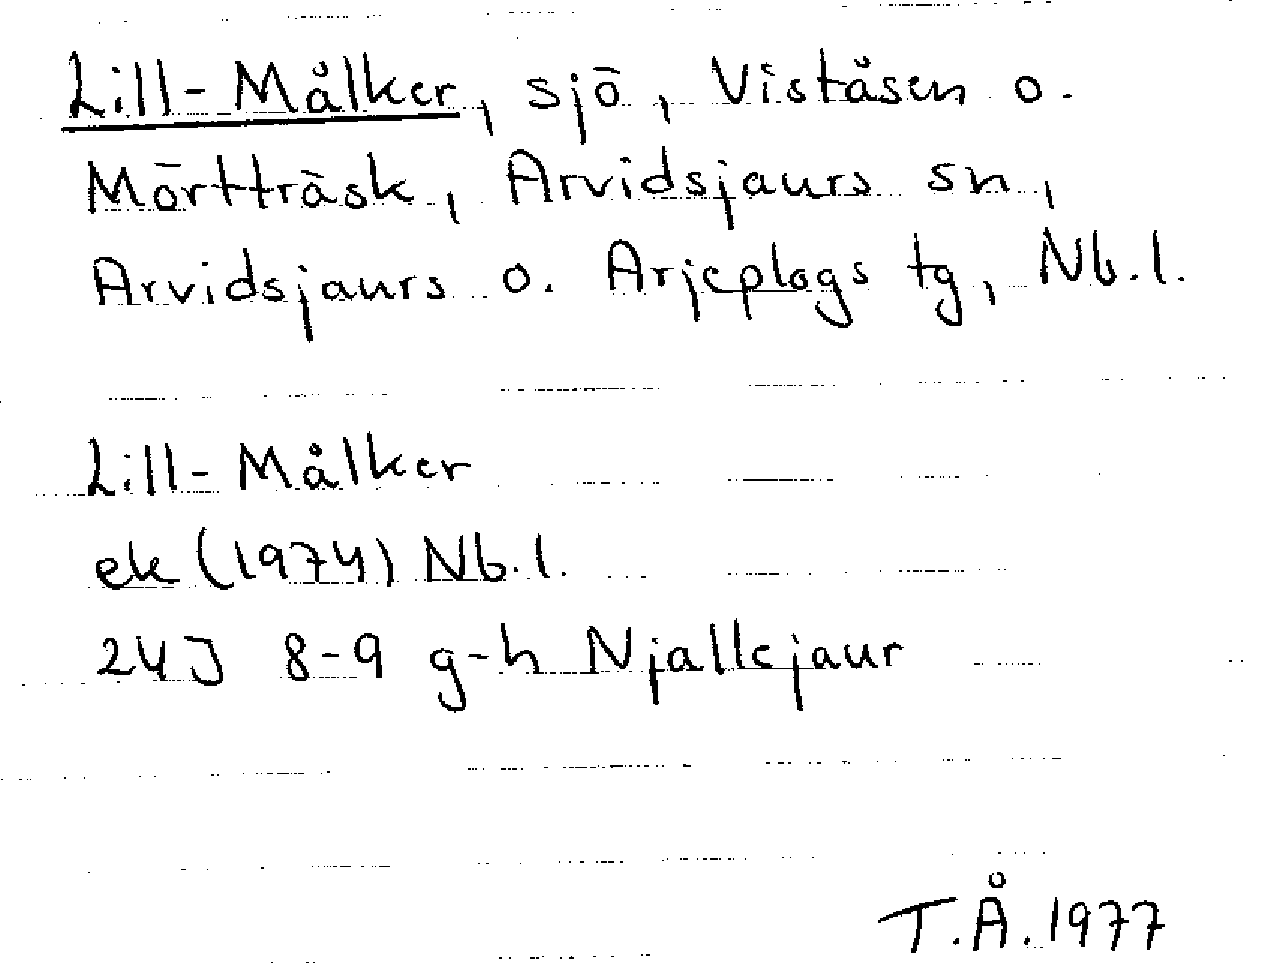 Lill-Målker, sjö, Viståsen o.
Mörtträsk, Arvidsjaurs sn,
Arvidsjaurs o. Arjeplogs tg, Nb.l.
Lill-Målker
ek (1974) Nb.l.
24J 8-9 g-h Njallejaur
T.Å.1977